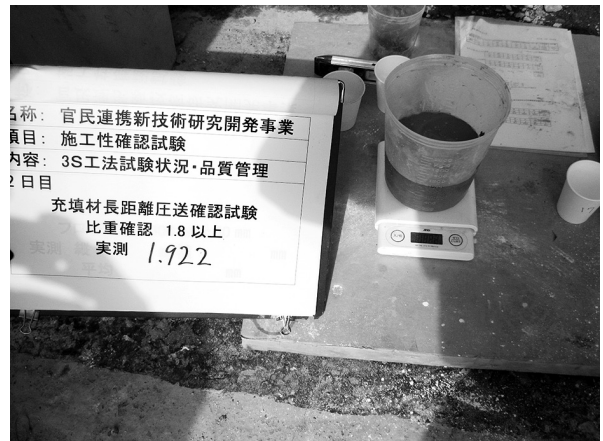 名称: 官民連携新技術研究開発事業
項目: 施工性確認試験
内容: 3S工法試験状況・品質管理
2日目
充填材長距離圧送確認試験
比重確認 1.8以上
実測 1.922